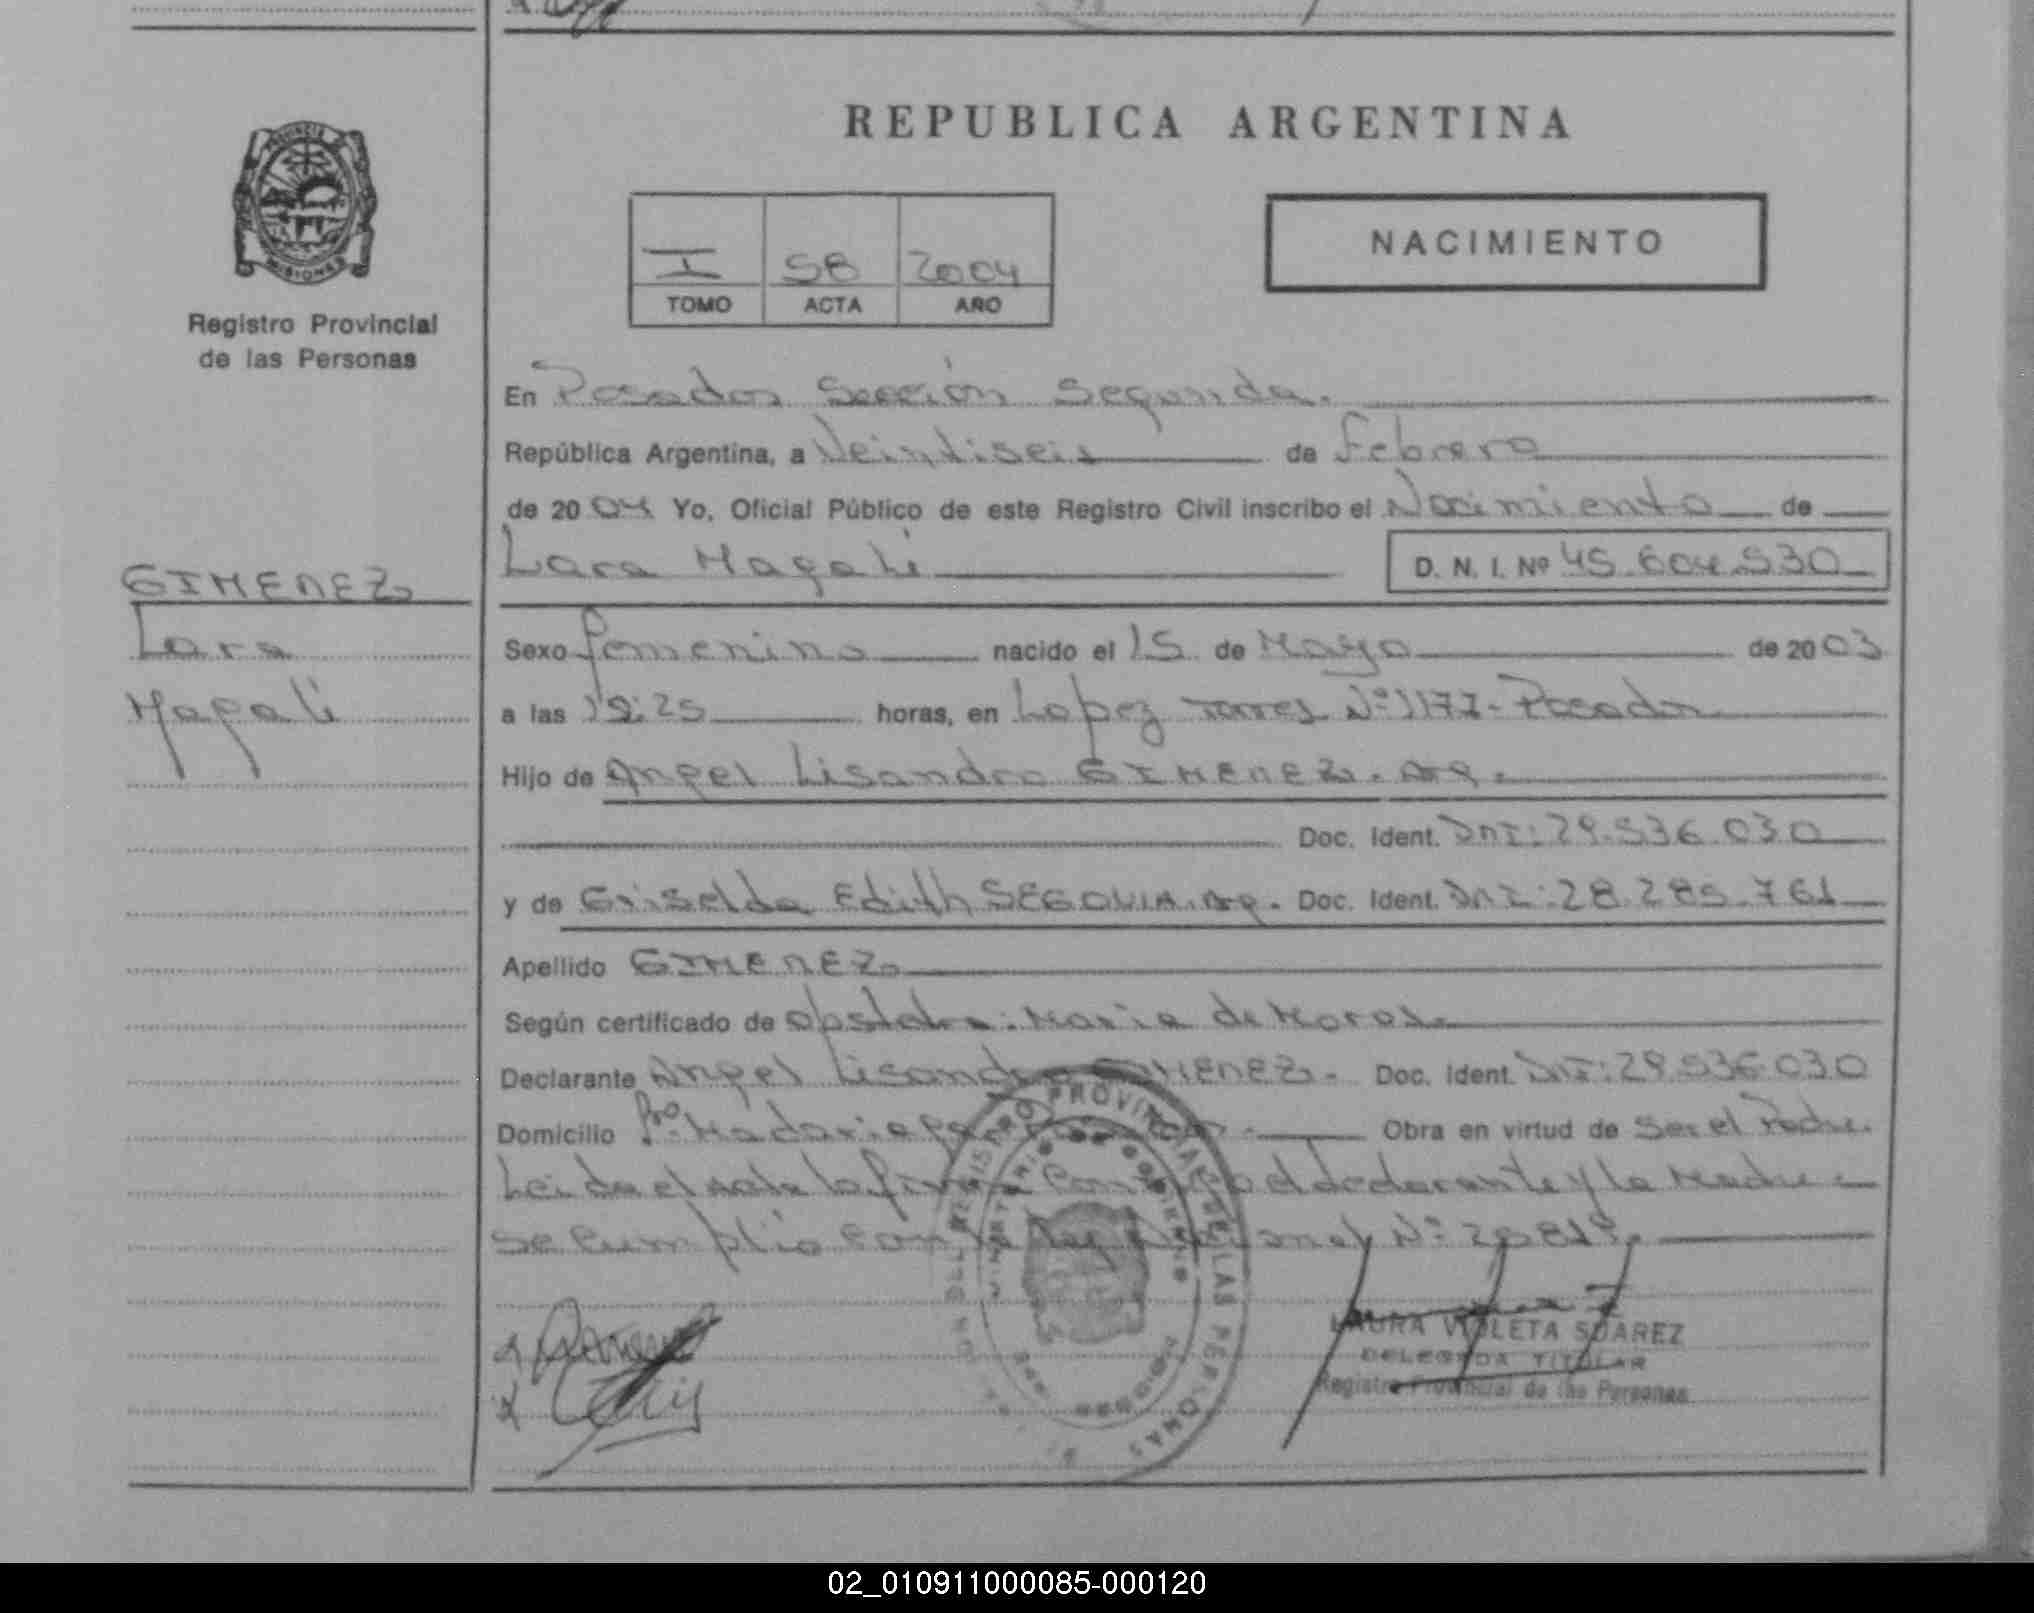 REPUBLICA ARGENTINA
PROVINCIA
MISIONES
Registro Provincial
de las Personas
I 58 2004
TOMO ACTA AÑO
NACIMIENTO
En Posadas Sección Segunda.
República Argentina, a Veintiseis de Febrero
de 2004 Yo, Oficial Público de este Registro Civil inscribo el Nacimiento de
Lara Magali D. N. I. Nº 45.604.530
GIMENEZ
Lara
Magali
Sexo femenino nacido el 15 de Mayo de 2003
a las 19:25 horas, en Lopez Torres Nº 1177- Posadas
Hijo de Angel Lisandro GIMENEZ. Arg.
Doc. Ident. DNI: 29.536.030
y de Griselda Edith SEGOVIA. Arg. Doc. Ident. DNI: 28.285.761
Apellido GIMENEZ
Según certificado de obstetra: Maria de
Declarante Angel Lisandro GIMENEZ. Doc. Ident. DNI: 29.536.030
Domicilio Bº Madariaga Obra en virtud de Ser el Padre.
Leida el acta la firma el declarante y la Madre
se cumplió con la Ley Nacional Nº
REGISTRO PROVINCIAL DE LAS PERSONAS
LAURA VIOLETA SUAREZ
DELEGADA TITULAR
Registro Provincial de las Personas
02_010911000085-000120